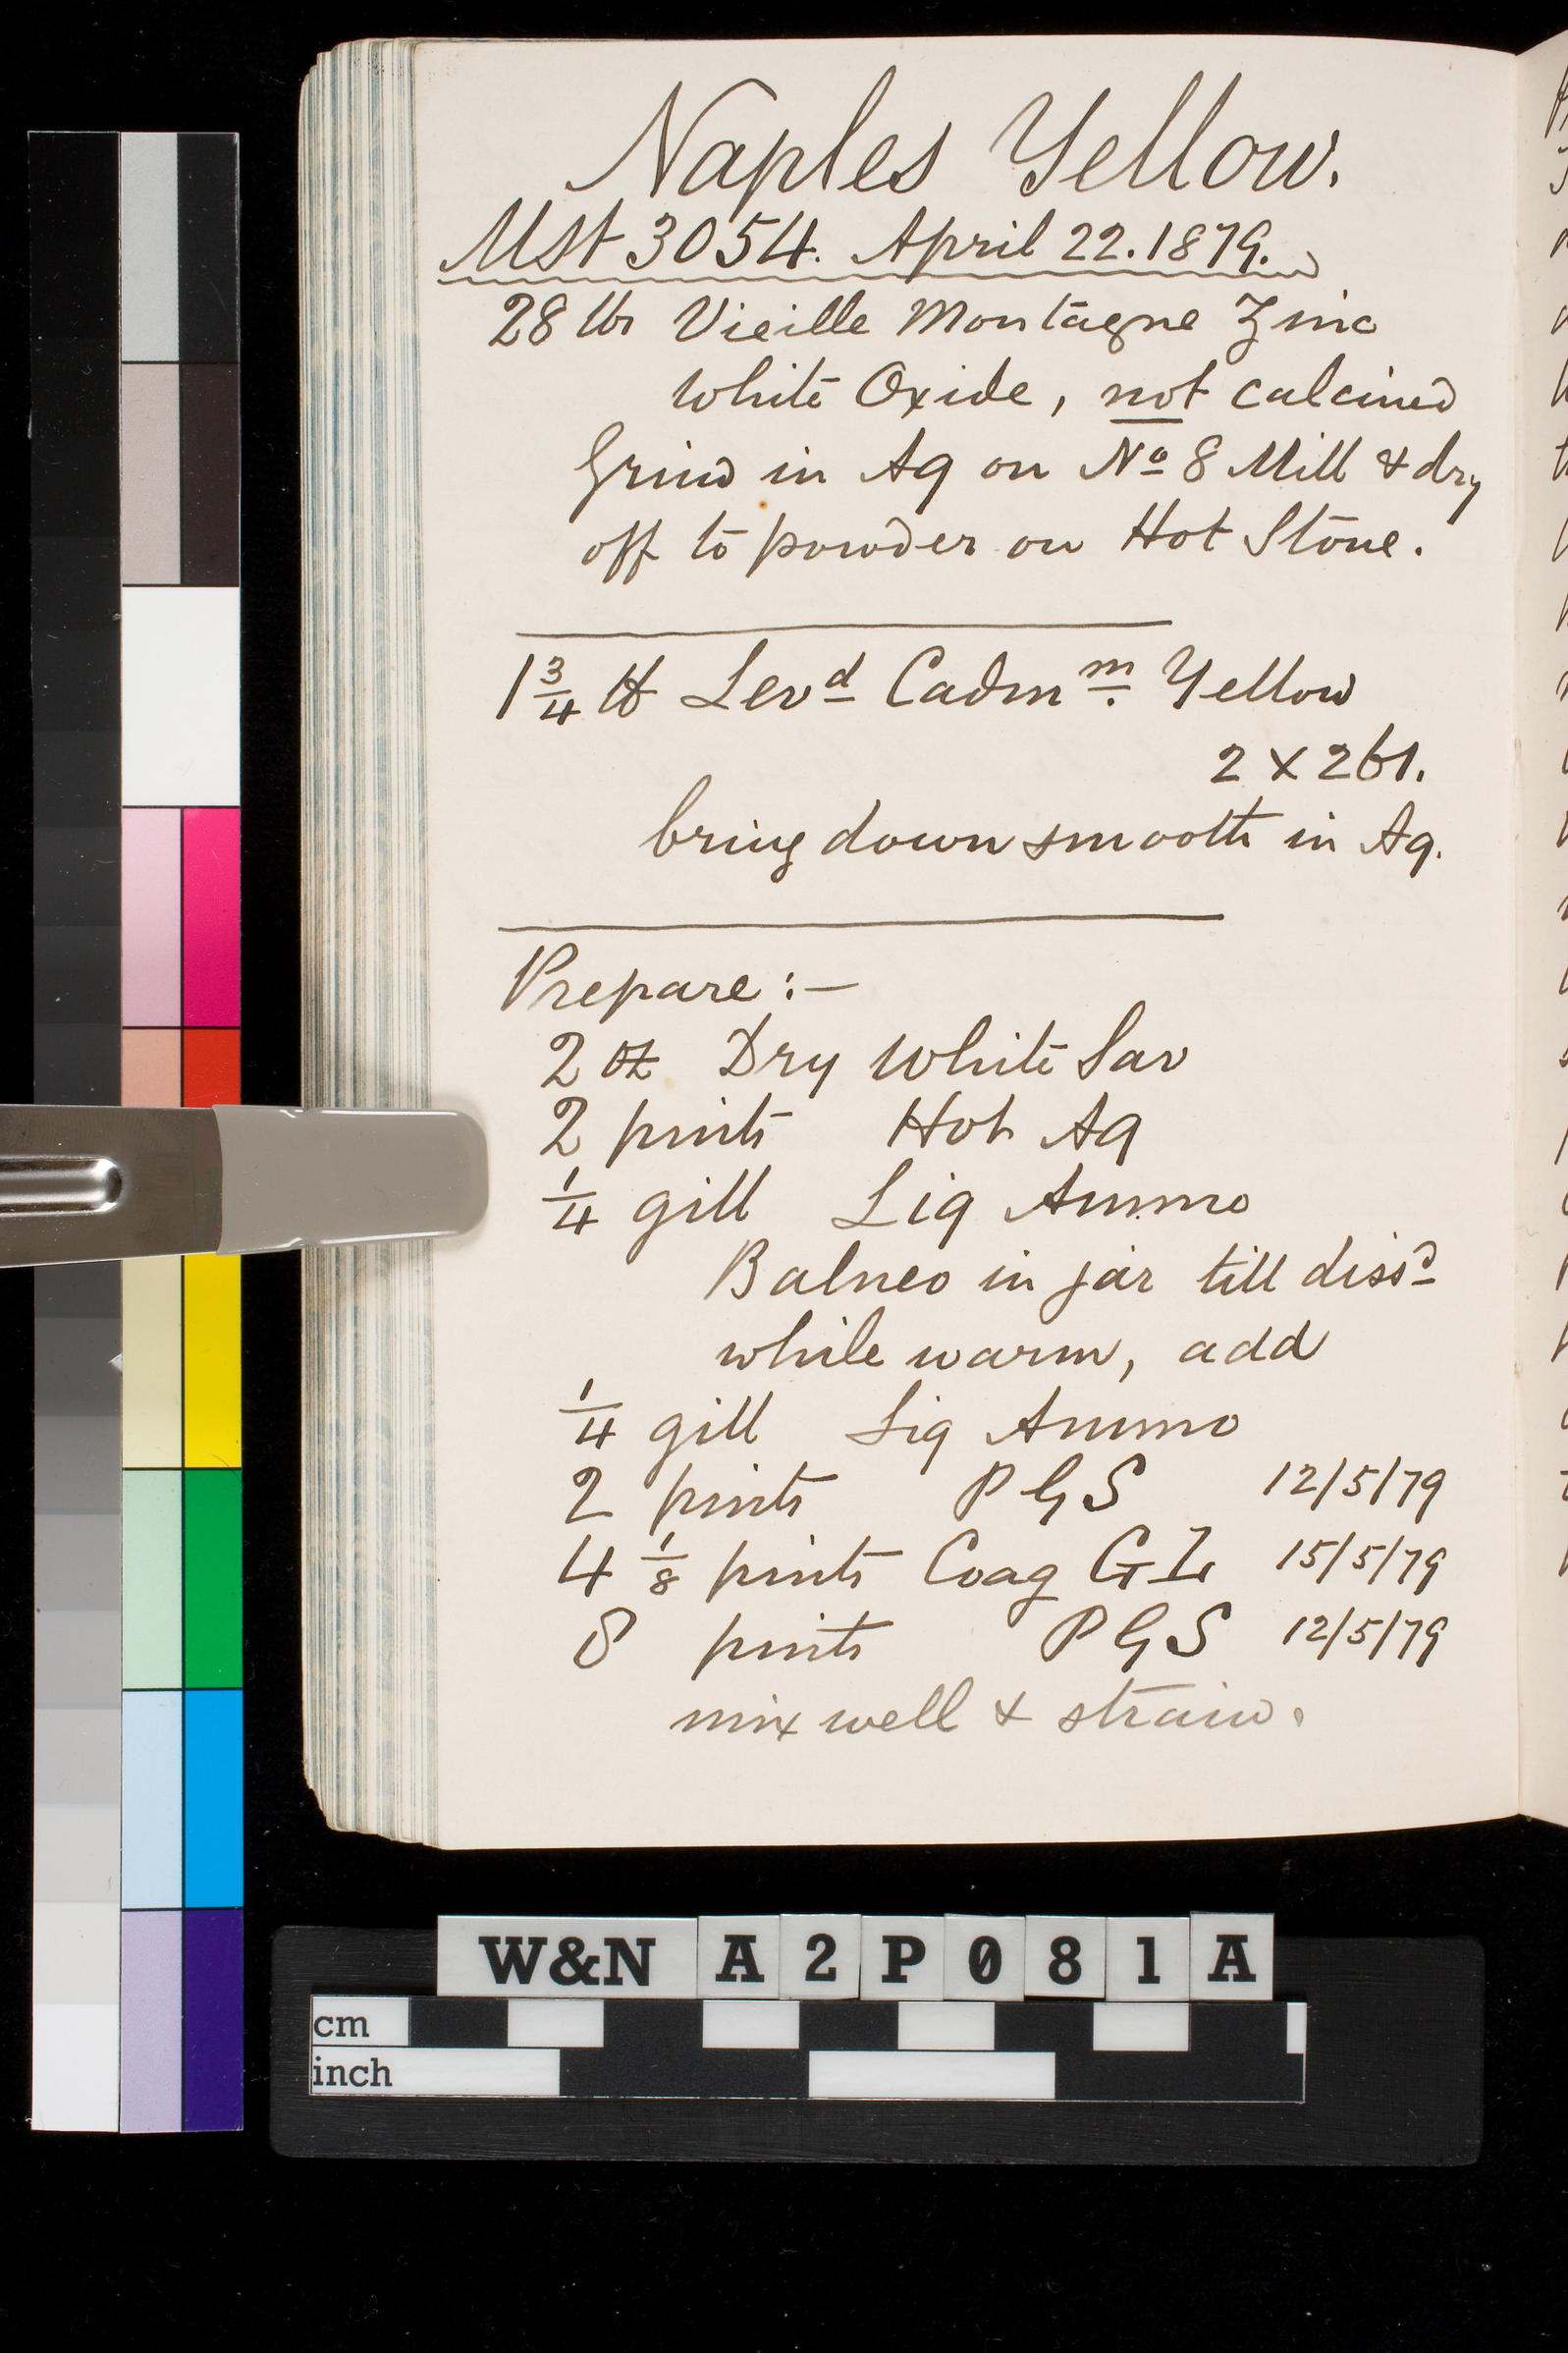 Naples Yellow.
Mst 3054. April 22. 1879.
28 lbs Vieille Montagne Zinc
White Oxide, not calcined
Grind in Aq on Nº 8 Mill & dry
off to powder on Hot Stone.
1 3/4 lb Levd Cadmm Yellow
2 X 261.
bring down smooth in Aq.
Prepare :—
2 oz Dry White Sav
2 pints Hot Aq
1/4 gill Liq Ammo
Balneo in jar till dissd
while warm, add
1/4 gill Liq Ammo
2 pints P G S 12/5/79
4 1/8 pints Coag G L 15/5/79
8 pints P G S 12/5/79
mix well & strain.
W&N A2P081A
cm
inch